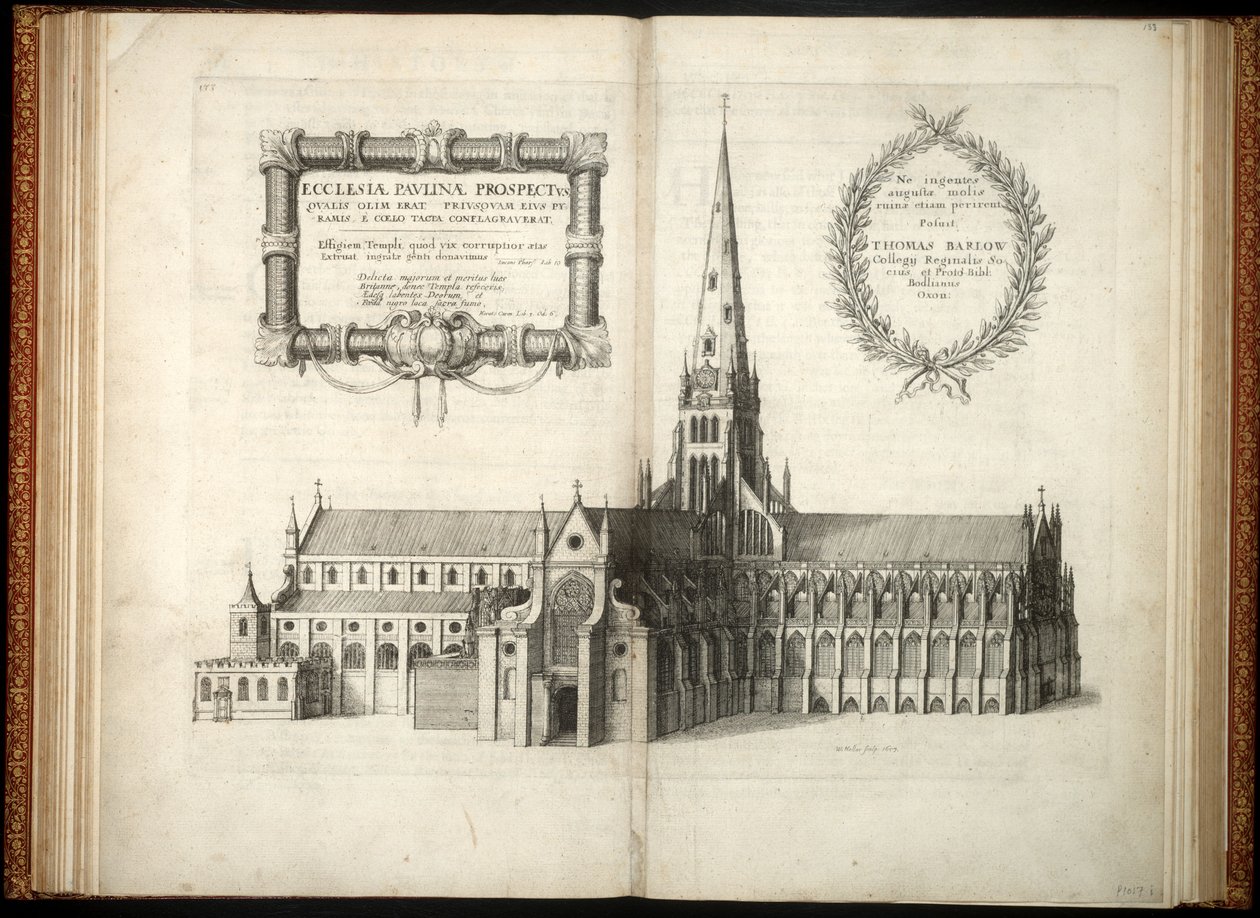 133
133
ECCLESIÆ PAVLINÆ PROSPECTVS
QVALIS OLIM ERAT, PRIVSQVAM EIVS PY-
RAMIS, È COELO TACTA CONFLAGRAVERAT.
Effigiem Templi, quod vix corruptior ætas
Extruat, ingratæ genti donavimus
Lucani Phars. Lib 10
Delicta majorum et meritus lues
Britanne, donec Templa refeceris,
Ædesq labentes Deorum, et
Fœda nigro loca sacra fumo.
Horat: Carm Lib. 3. Od. 6.
Ne ingentes
augustæ molis
ruinæ etiam perirent
Posuit,
THOMAS BARLOW
Collegij Reginalis So-
cius, et Proto-Bibl:
Bodlianus
Oxon:
W: Hollar sculp. 1657.
P1017 i